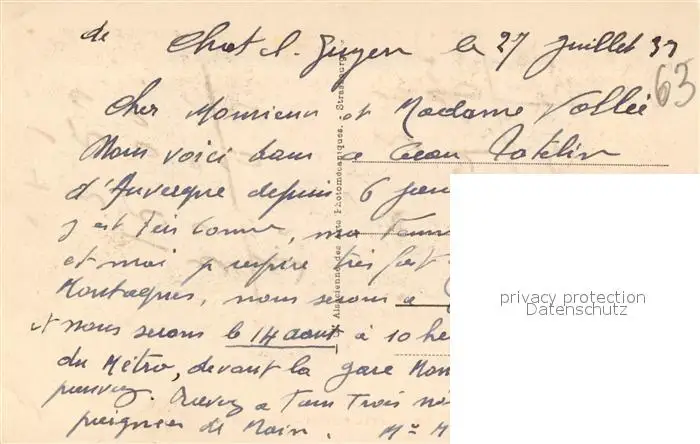 de Chatel-Guyon le 27 Juillet 37
63
Cher Monsieur et Madame Vallée
Nous voici dans ce beau
d'Auvergne depuis 6 jours
et moi je respire très fort
Montagnes, nous serons à
et nous serons le 14 aout à 10 he
du Métro, devant la gare Mon
pouvez. Recevez a Tous Trois nos
poignées de Main. Mr M
Alsacienne des Arts Photomécaniques, Strasbourg
privacy protection
Datenschutz